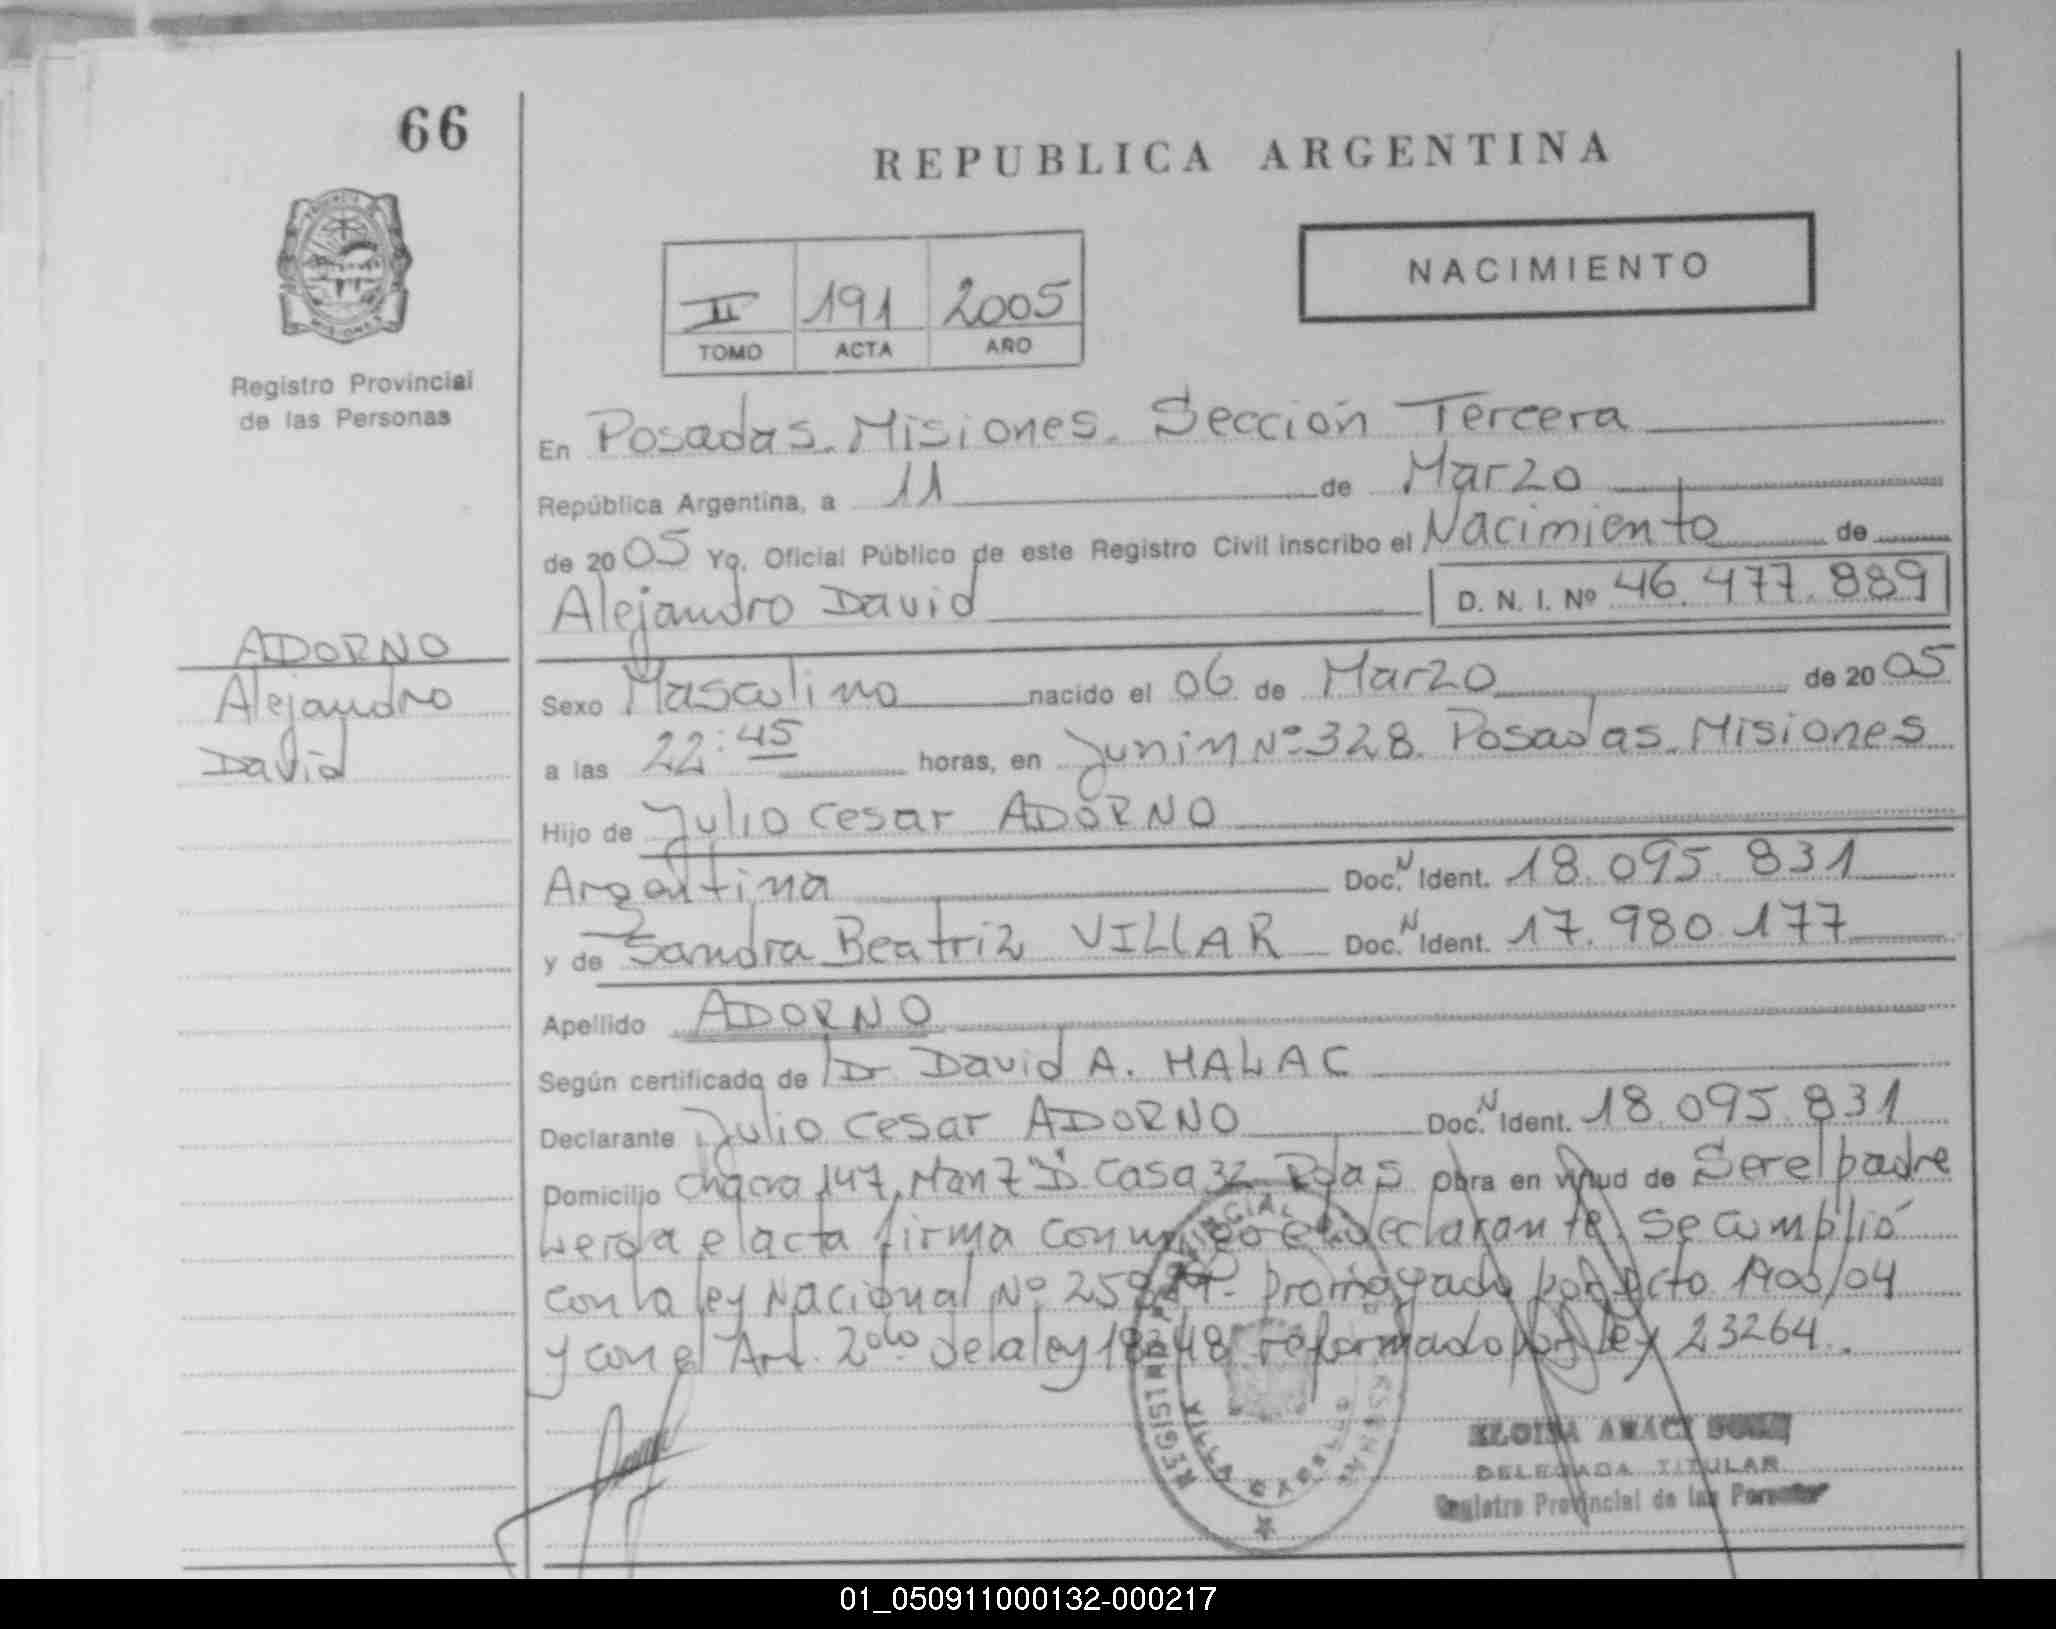 66
REPUBLICA ARGENTINA
NACIMIENTO
II 191 2005
TOMO ACTA AÑO
Registro Provincial
de las Personas
En Posadas. Misiones. Sección Tercera
República Argentina, a 11 de Marzo
de 2005 Yo, Oficial Público de este Registro Civil inscribo el Nacimiento de
Alejandro David D. N. I. Nº 46.477.889
ADORNO
Alejandro
David
Sexo Masculino nacido el 06 de Marzo de 2005
a las 22:45 horas, en Junin Nº 328. Posadas. Misiones
Hijo de Julio Cesar ADORNO
Argentina Doc. N Ident. 18.095.831
y de Sandra Beatriz VILLAR Doc. N Ident. 17.980.177
Apellido ADORNO
Según certificado de Dr David A. HALAC
Declarante Julio Cesar ADORNO Doc. N Ident. 18.095.831
Domicilio Chacra 147, Manz "D" Casa 32 Pdas Obra en virtud de Ser el padre
Leida el acta firma conmigo el declarante. Se cumplió
con la ley Nacional Nº promogado por Dcto 1900/04
y con el Art. 2do de la ley 18248 reformado por ley 23264.
DELEGADA TITULAR
Registro Provincial de las Personas
01_050911000132-000217